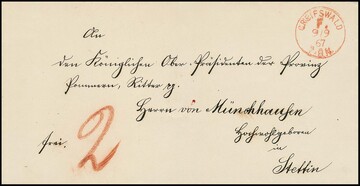 GREIFSWALD
9/9
67
An
den Königlichen Ober-Präsidenten der Provinz
Pommern, Ritter pp.
Herrn von Münchhausen
Hochwohlgeboren
frei.
2
in
Stettin